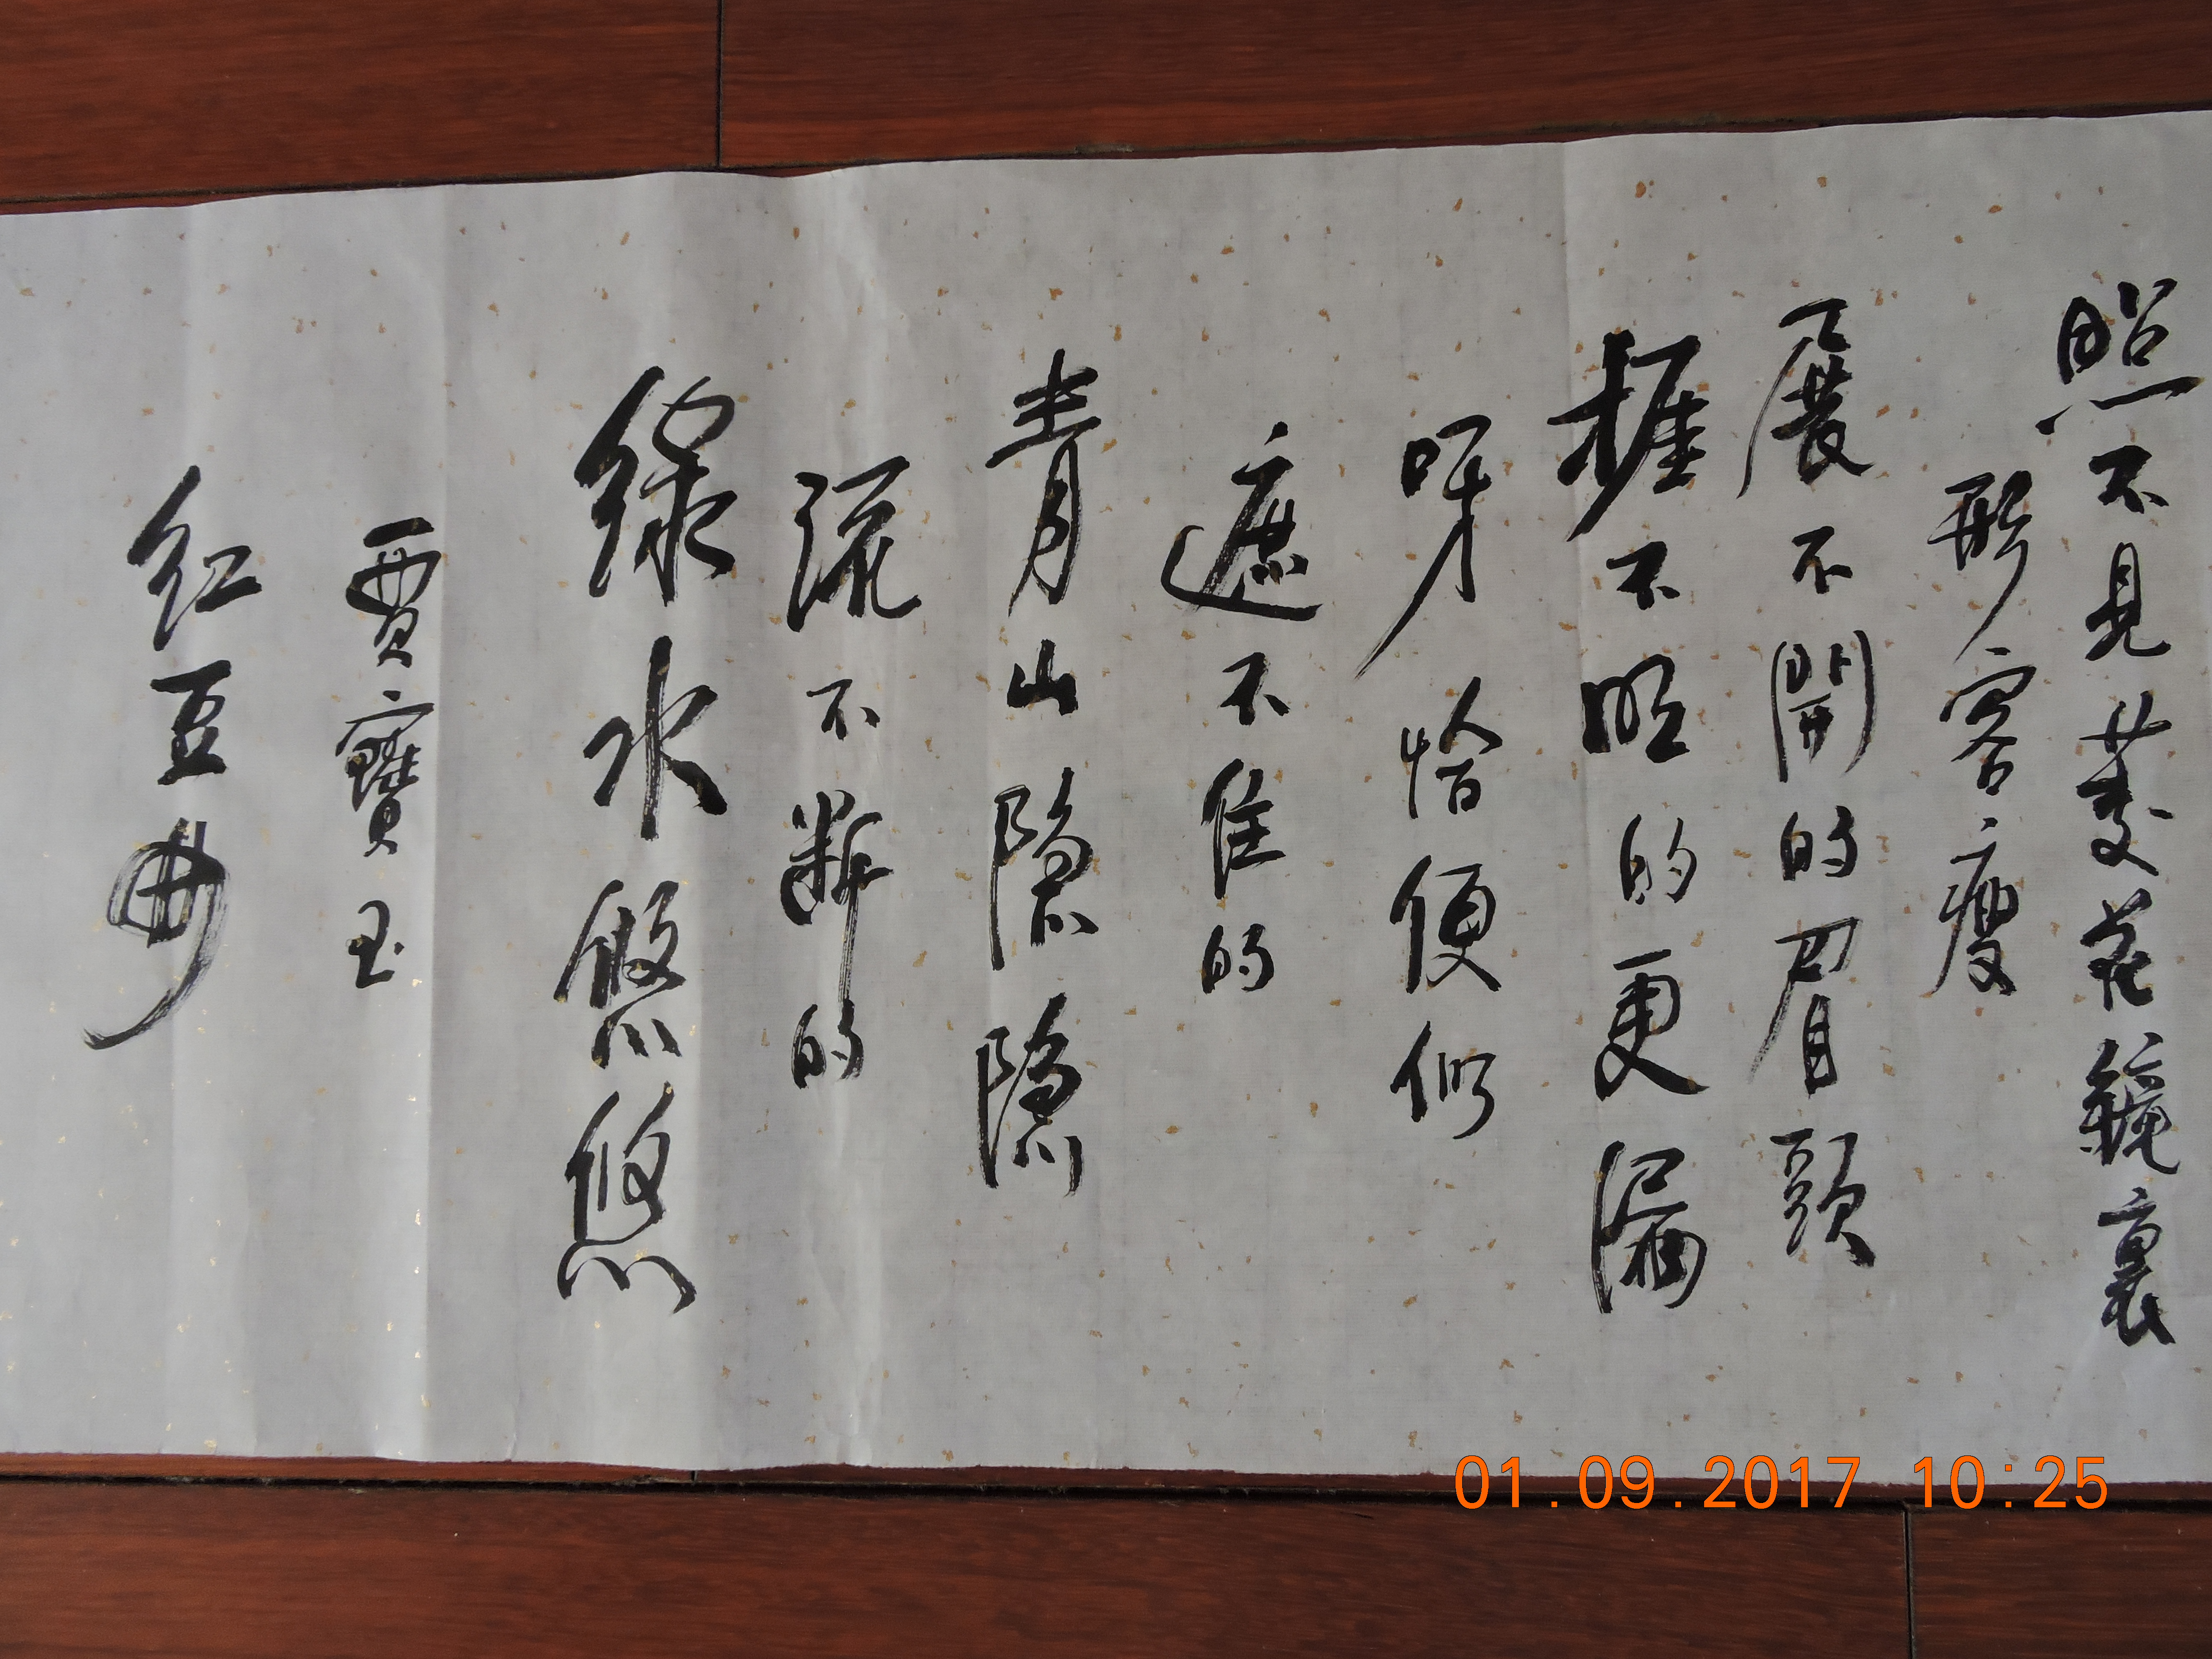 照不見菱花鏡裏
形容瘦
展不開的眉頭
捱不明的更漏
呀恰便似
遮不住的
青山隱隱
流不斷的
綠水悠悠
賈寶玉
紅豆曲
01.09.2017 10:25